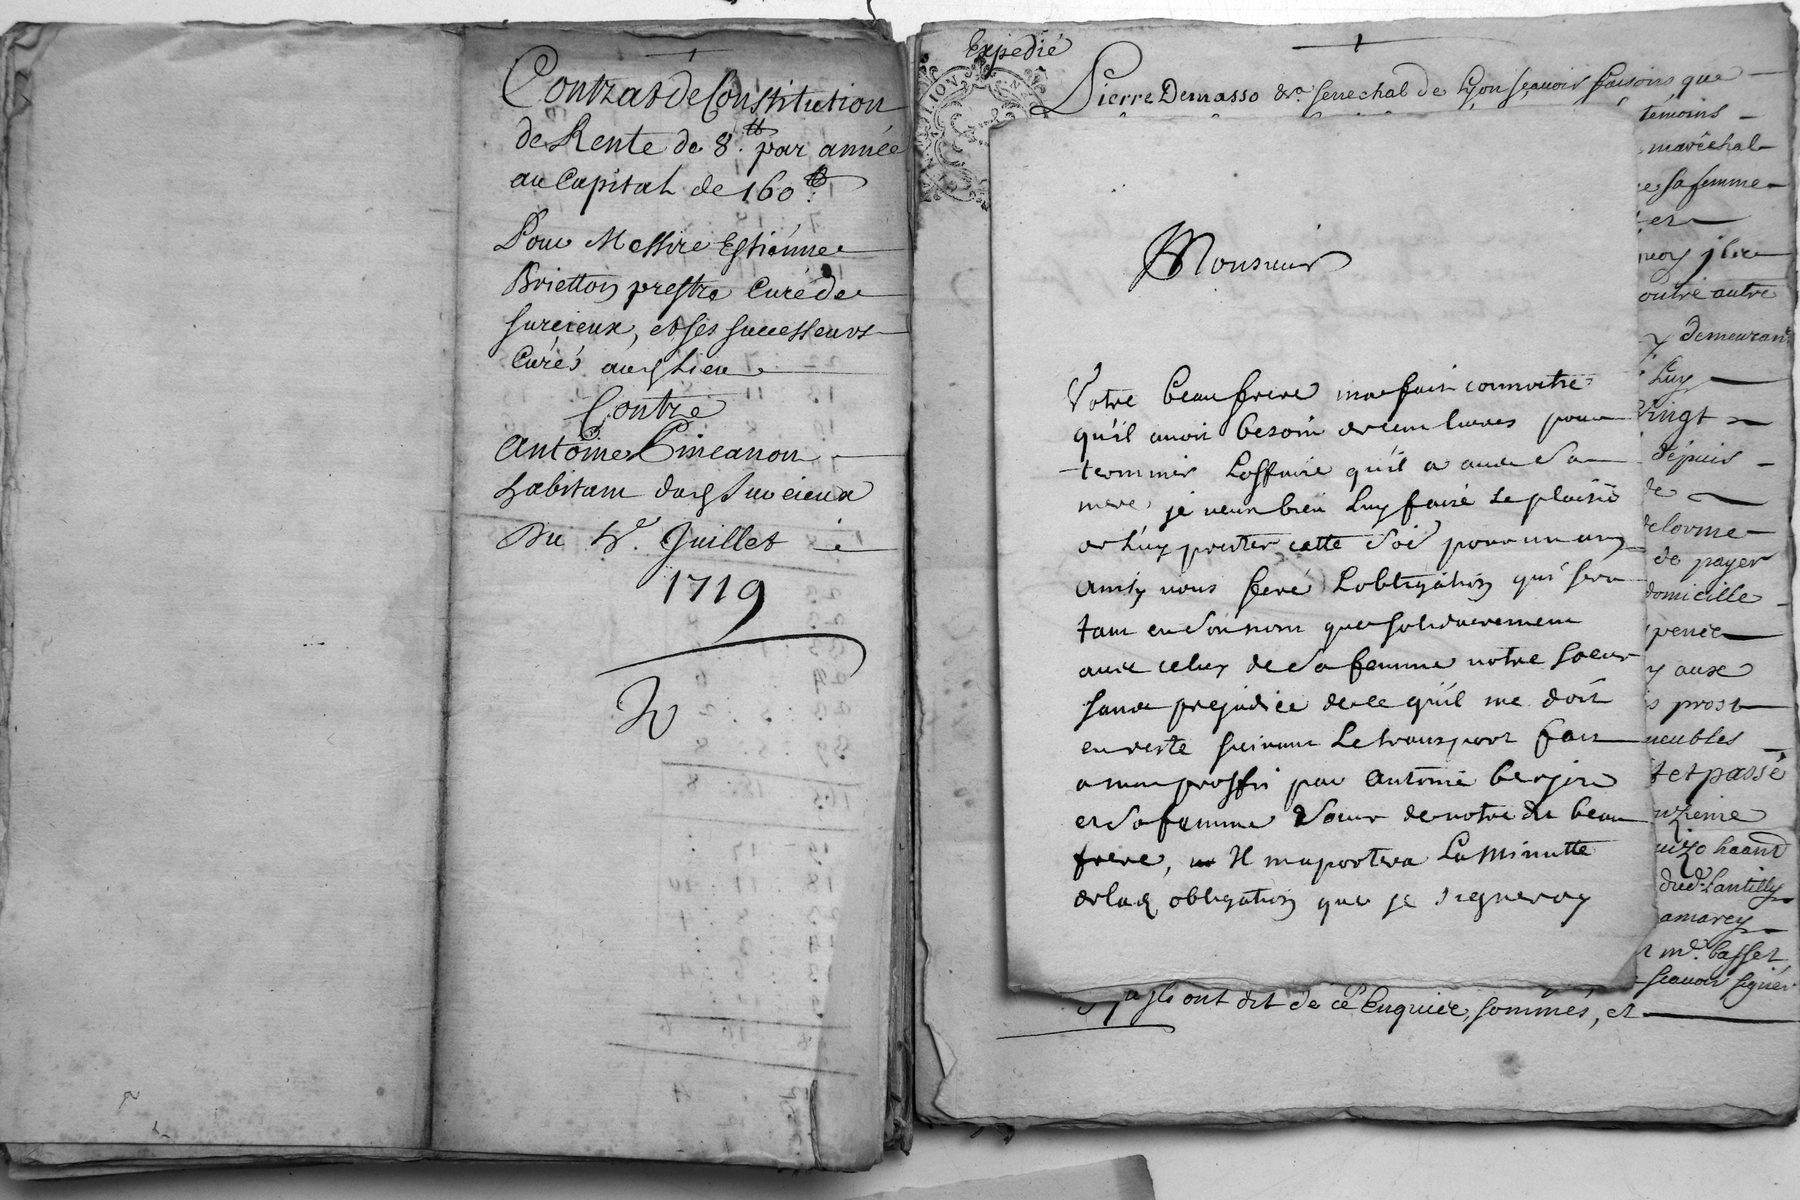 Contrat de Constitution
de Rente de 8.tt par année
au Capital de 160tt
Pour Messire Estienne
Brietton prestre Curé de
surcieux, et ses successeurs
Curés audt Lieu
Contre
Antoine Pincanon
habitant dudt Surcieux
Du 4e. Juillet
1719
Expedié
Pierre Demasso sr. senechal de Lyon sçauoir faisons que
temoins
maréchal
sa femme
et
outre autre
demeurant
Luy
vingt
depuis
de
delorme
de payer
domicille
aux
prost
meubles
et passé
dud. Lantilly
mr. basset
scauoir signer
ils ont dit de ce Enquis, sommés, et
Monsieur
Votre beau frere ma fait connoitre
qu'il auoit besoin de cent liures pour
terminer Laffaire qu'il a auec sa
mere je veux bien Luy faire Le plaisir
de Luy prester cette pour un an
vous feré Lobligation qui sera
tant en son nom que solidairement
auec celuy de sa femme votre soeur
sans prejudice de ce qu'il me doit
en reste suiuant Le transport fait
a mon proffit par Antoine bergire
et sa femme soeur de votre dit beau
frere, Il maportera La Minutte
de ladt obligation que je signeray